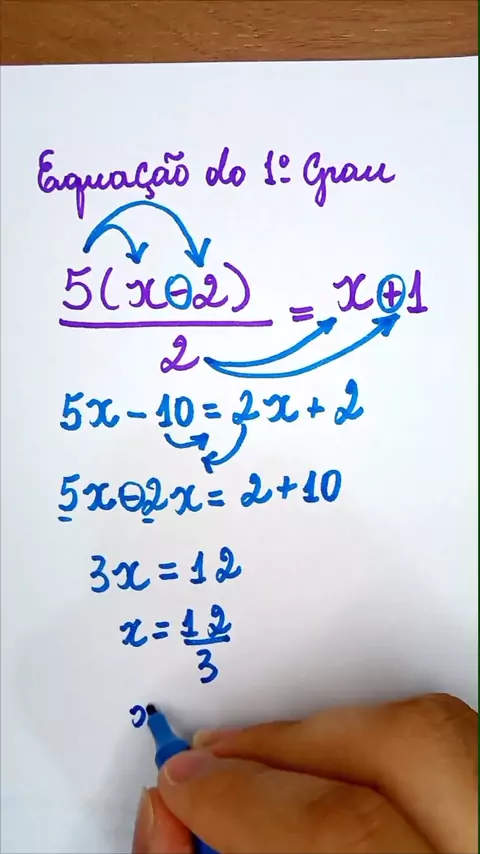 Equação do 1º Grau
5(x-2)/2 = x+1
5x-10=2x+2
5x-2x=2+10
3x=12
x=12/3
x